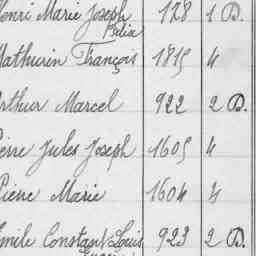 Henri Marie Joseph 128 1 D.
Mathurin François 1815 4
Arthur Marcel 922 2 D.
Pierre Jules Joseph 1605 4
Pierre Marie 1604 4
Emile Constant Louis 923 2 D.